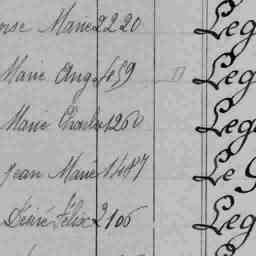 Marie 2220 Leg
Marie Ang 459 " Leg
Marie Charles 1260 Leg
Jean Marie 1487 Le G
Désiré Félix 2106 Leg